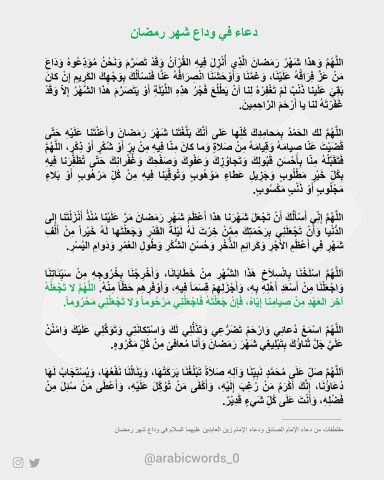 دعاء في وداع شهر رمضان
اللَّهُمَّ وَهَذا شَهْرُ رَمَضَانَ الَّذِي أُنْزِلَ فِيهِ القُرْآنُ وَقَدْ تَصَرَّمَ وَنَحْنُ مُوَدِّعُوهُ وَدَاعَ
مَنْ عَزَّ فِرَاقُهُ عَلَيْنَا، وَغَمَّنَا وَأَوْحَشَنَا انْصِرَافُهُ عَنَّا فَنَسأَلُكَ بِوَجْهِكَ الكَرِيمِ إنْ كَانَ
بَقِيَ عَلَينا ذَنْبٌ لَمْ تَغْفِرْهُ لِنا أَنْ يَطْلُعَ فَجْرُ هَذِهِ اللَّيْلَةِ أَوْ يَتَصَرَّمَ هَذا الشَّهْرُ إِلّا وَقَدْ
غَفَرْتَهُ لَنا يا أَرْحَمَ الرَّاحِمِينَ.
اللَّهُمَّ لَكَ الحَمْدُ بِمَحامِدِكَ كُلِّها عَلى أَنَّكَ بَلَّغْتَنا شَهْرَ رَمَضَانَ وَأَعَنْتَنا عَلَيْهِ حَتَّى
قَضَيْتَ عَنَّا صِيامَهُ وَقِيامَهُ مِنْ صَلاةٍ وَما كانَ مِنَّا فِيهِ مِنْ بِرٍّ أَوْ شُكْرٍ أَوْ ذِكْرٍ، اللَّهُمَّ
فَتَقَبَّلْهُ مِنَّا بِأَحْسَنِ قَبُولِكَ وَتَجاوُزِكَ وَعَفْوِكَ وَصَفْحِكَ وَغُفْرانِكَ حَتَّى تُظَفِّرَنا فِيهِ
بِكُلِّ خَيْرٍ مَطْلُوبٍ وَجَزِيلِ عَطاءٍ مَوْهُوبٍ وَتُوقِيَنا فِيهِ مِنْ كُلِّ مَرْهُوبٍ أَوْ بَلاءٍ
مَجْلُوبٍ أَوْ ذَنْبٍ مَكْسُوبٍ.
اللَّهُمَّ إِنِّي أَسأَلُكَ أَنْ تَجْعَلَ شَهْرَنا هذا أَعْظَمَ شَهْرِ رَمَضَانَ مَرَّ عَلَيْنا مُنْذُ أَنْزَلْتَنا إِلى
الدُّنْيا وَأَنْ تَجْعَلَنِي بِرَحْمَتِكَ مِمَّنْ خِرْتَ لَهُ لَيْلَةَ القَدْرِ وَجَعَلْتَها لَهُ خَيْراً مِنْ أَلْفِ
شَهْرٍ فِي أَعْظَمِ الأَجْرِ وَكَرائِمِ الذُّخْرِ وَحُسْنِ الشُّكْرِ وَطُولِ العُمْرِ وَدَوامِ اليُسْرِ.
اَللَّهُمَّ اسْلَخْنَا بِانْسِلاخِ هَذَا الشَّهْرِ مِنْ خَطَايَانَا، وَأَخْرِجْنَا بِخُرُوجِهِ مِنْ سَيِّئَاتِنَا
وَاجْعَلْنَا مِنْ أَسْعَدِ أَهْلِهِ بِهِ، وَأَجْزَلِهِمْ قِسَماً فِيهِ، وَأَوْفَرِهِمْ حَظّاً مِنْهُ. اللَّهُمَّ لا تَجْعَلْهُ
آخِرَ العَهْدِ مِنْ صِيامِنا إِيَّاهُ، فَإِنْ جَعَلْتَهُ فَاجْعَلْنِي مَرْحُوماً وَلا تَجْعَلْنِي مَحْرُوماً.
اللَّهُمَّ اسْمَعْ دُعائِي وَارْحَمْ تَضَرُّعِي وَتَذَلُّلِي لَكَ وَاسْتِكانَتِي وَتَوَكُّلِي عَلَيْكَ وَامْنُنْ
عَلَيَّ جَلَّ ثَناؤُكَ بِتَبْلِيغِي شَهْرَ رَمَضَانَ وَأَنا مُعافىً مِنْ كُلِّ مَكْرُوهٍ.
اَللَّهُمَّ صَلِّ عَلَى مُحَمَّدٍ نَبِيِّنَا وَآلِهِ صَلاةً تَبْلُغُنَا بَرَكَتُهَا، وَيَنَالُنَا نَفْعُهَا، وَيُسْتَجَابُ لَهَا
دُعَاؤُنَا، إِنَّكَ أَكْرَمُ مَنْ رُغِبَ إِلَيْهِ، وَأَكْفَى مَنْ تُوُكِّلَ عَلَيْهِ، وَأَعْطَى مَنْ سُئِلَ مِنْ
فَضْلِهِ، وَأَنْتَ عَلَى كُلِّ شَيْءٍ قَدِيرٌ.
مقتطفات من دعاء الإمام الصادق ودعاء الإمام زين العابدين عليهما السلام في وداع شهر رمضان
@arabicwords_0